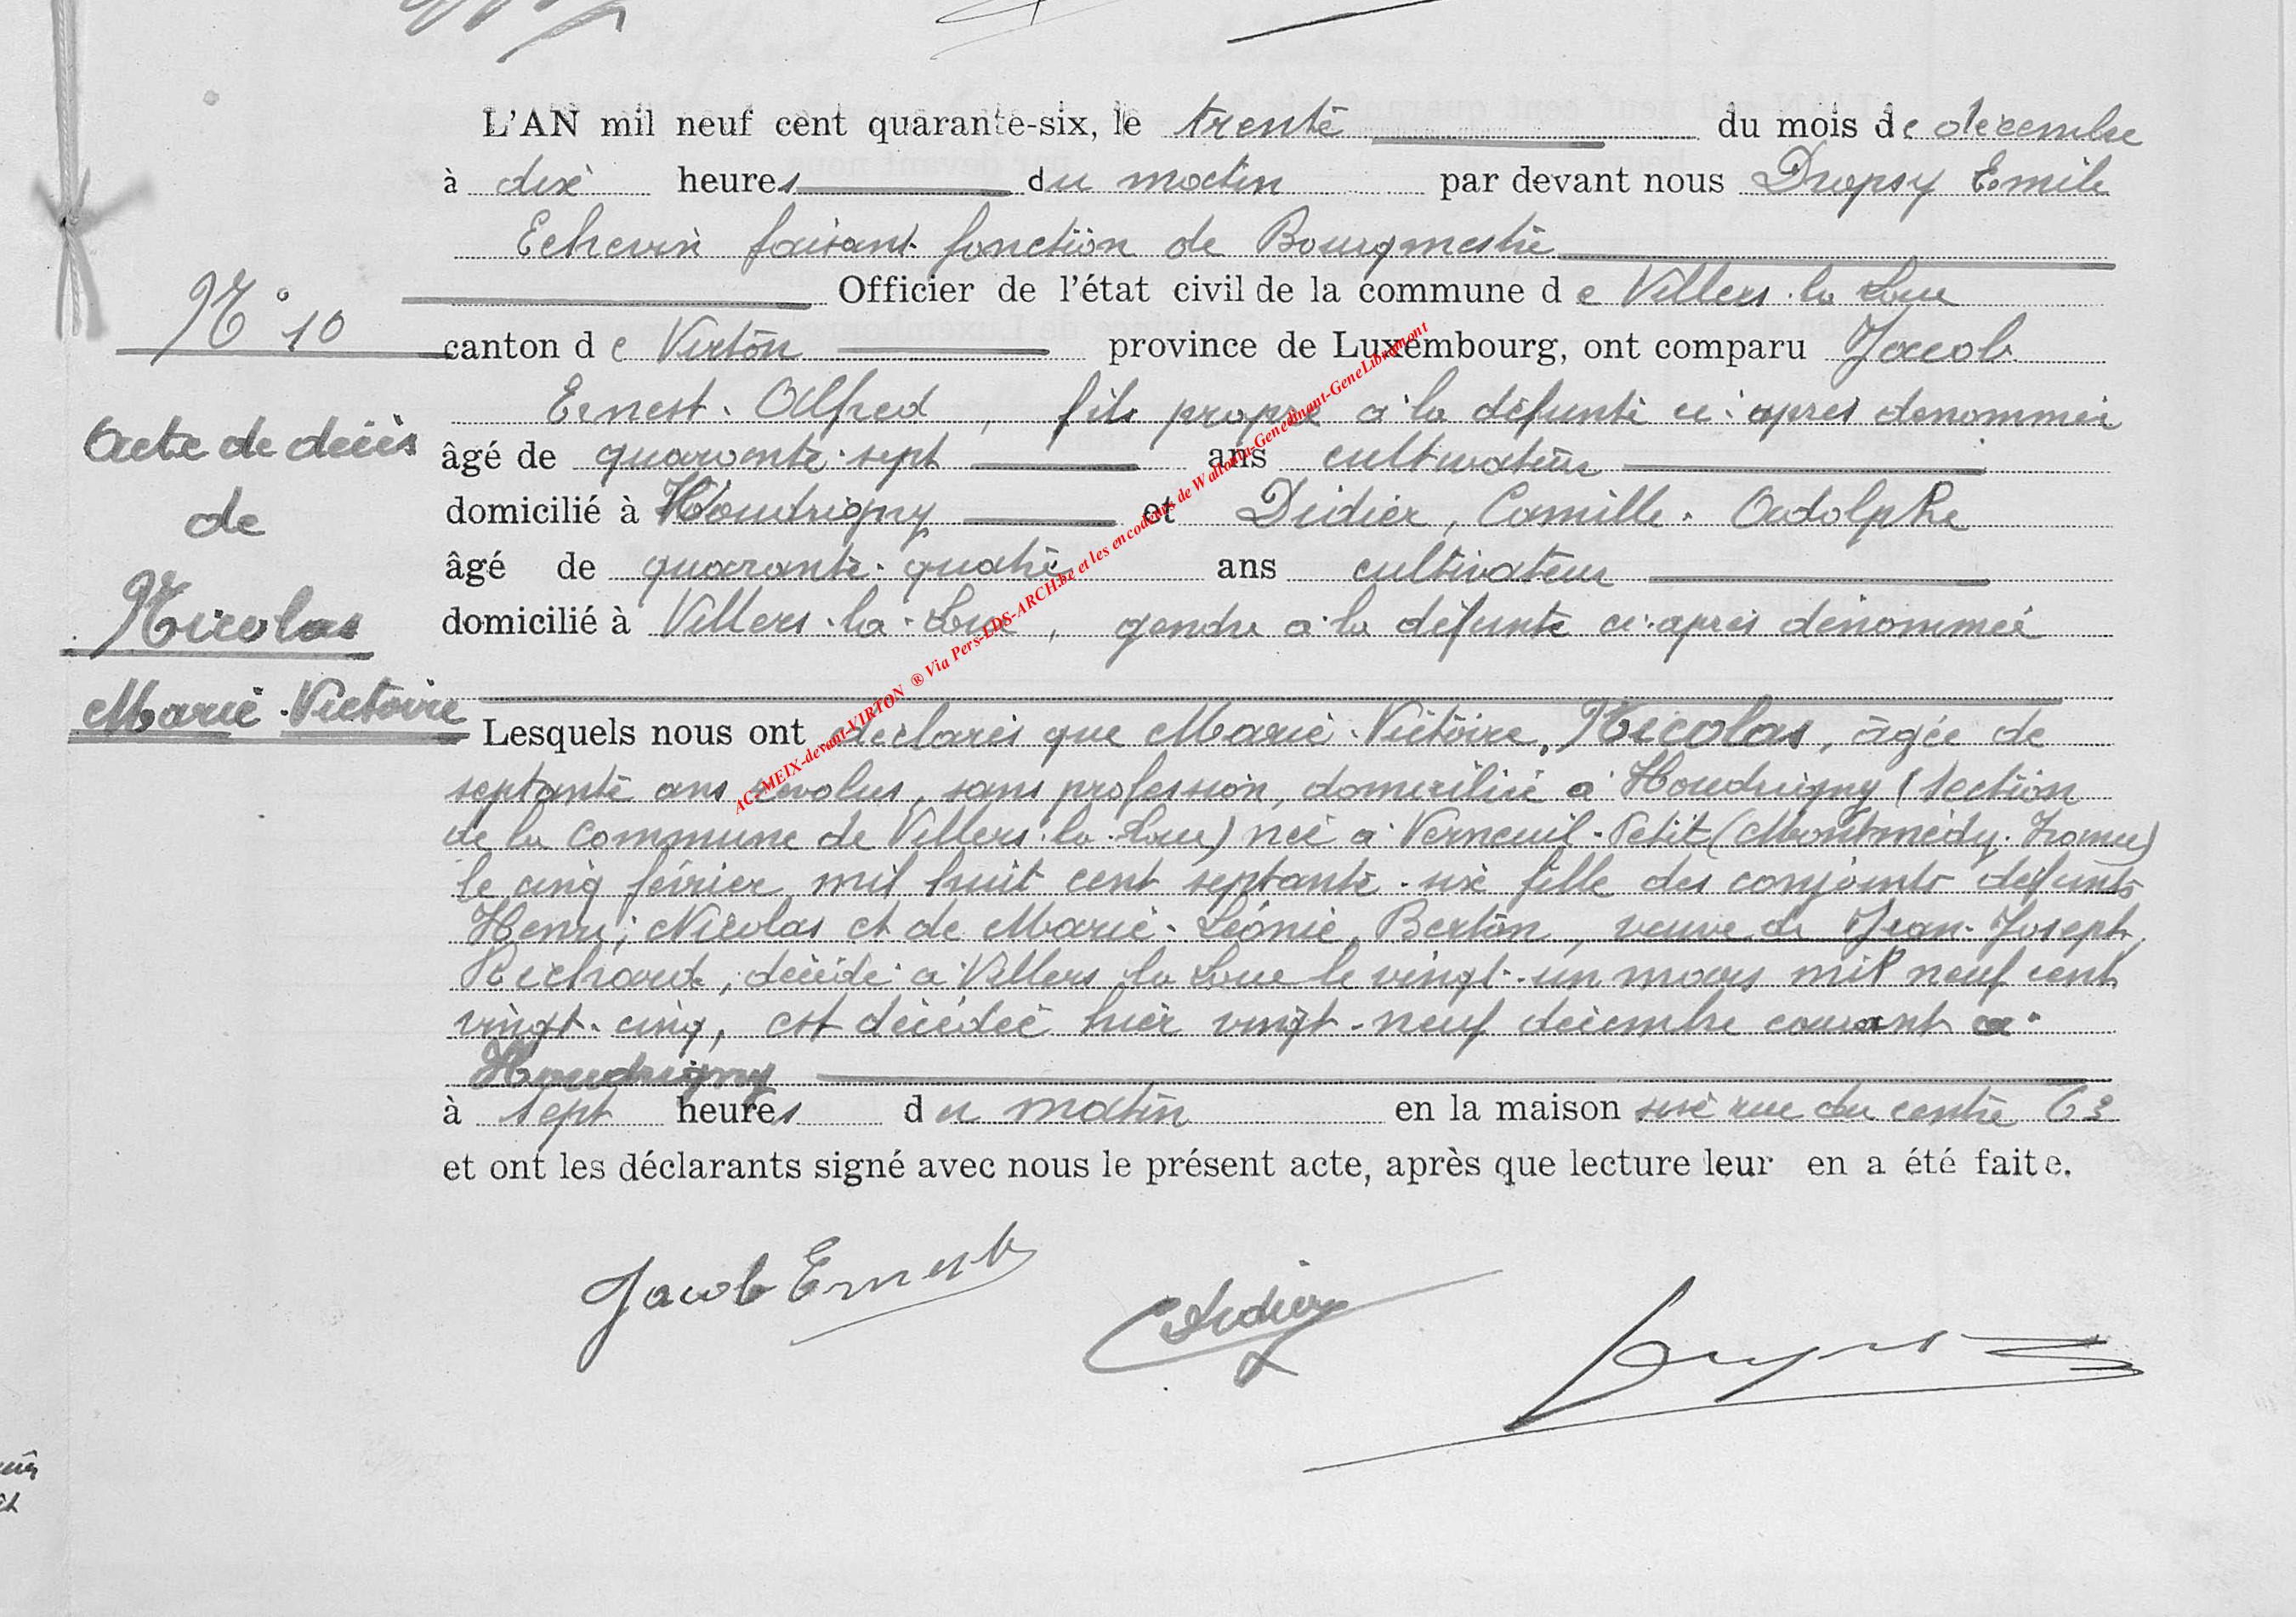 L'AN mil neuf cent quarante-six, le trente du mois de décembre
à dix heures du matin par devant nous Dropsy Emile
Echevin faisant fonction de Bourgmestre
Officier de l'état civil de la commune de Villers-la-Loue
N° 10
canton de Virton province de Luxembourg, ont comparu Jacob
Ernest-Alfred, fils propre à la défunte ci-après dénommée
Acte de décès
âgé de quarante-sept ans cultivateur
domicilié à Houdrigny et Didier, Camille-Adolphe
de
âgé de quarante-quatre ans cultivateur
Nicolas
domicilié à Villers-la-Loue, gendre à la défunte ci-après dénommée
Marie-Victoire
Lesquels nous ont déclarés que Marie-Victoire, Nicolas, âgée de
septante ans révolus, sans profession, domiciliée à Houdrigny (section
de la commune de Villers-la-Loue) née à Verneuil-Petit (Montmédy-France)
le cinq février mil huit cent septante-six fille des conjoints défunts
Henri, Nicolas et de Marie-Léonie, Berton, veuve de Jean-Joseph,
Richard, décédé à Villers la Loue le vingt-un mars mil neuf cent
vingt-cinq, est décédée hier vingt-neuf décembre courant à
Houdrigny
à sept heures du matin en la maison sise rue du centre 63
et ont les déclarants signé avec nous le présent acte, après que lecture leur en a été faite.
Jacob Ernest
CDidier
AC-MEIX-devant-VIRTON ® Via Pers-LDS-ARCH.be et les encodeurs de Wallonia-Genedinant-GeneLibramont